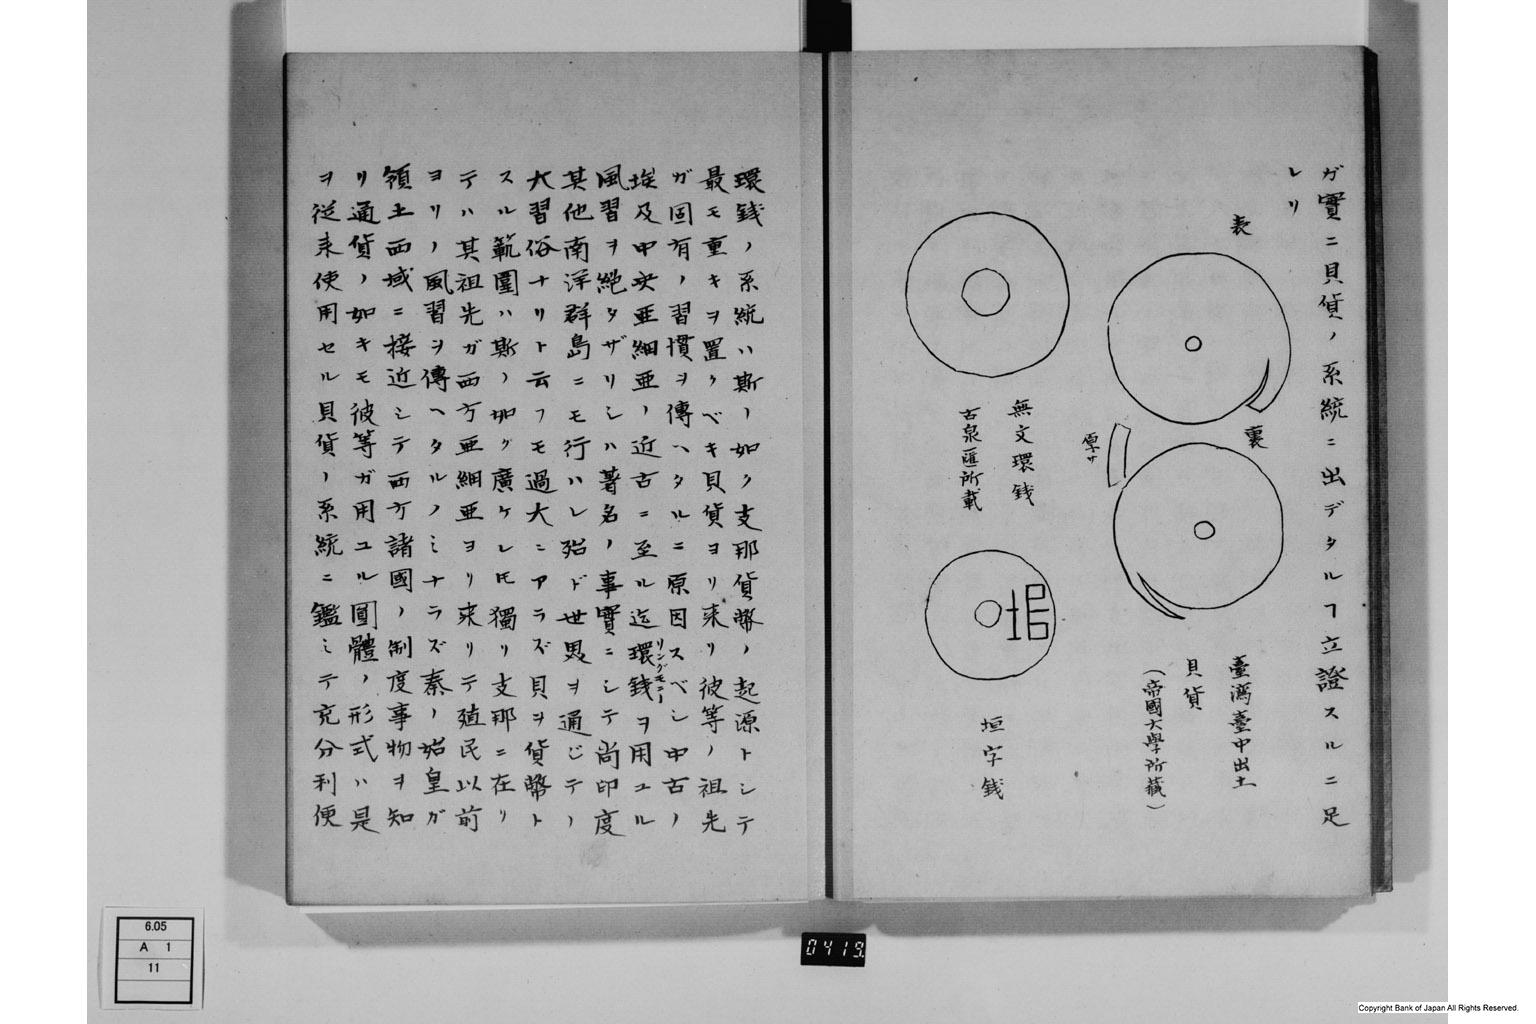 ガ實ニ貝貨ノ系統ニ出デタルヿ立證スルニ足
レリ
表
裏
厚サ
臺灣臺中出土
貝貨
(帝國大學所藏)
無文環錢
古泉匯所載
垣
垣字錢
環錢ノ系統ハ斯ノ如ク支那貨幣ノ起源トシテ
最モ重キヲ置クベキ貝貨ヨリ来リ彼等ノ祖先
ガ固有ノ習慣ヲ傳ヘタルニ原因スベシ中古ノ
埃及中央亜細亜ノ近古ニ至ル迄環錢ヲ用ユル
リングモニー
風習ヲ絶タザリシハ著名ノ事實ニシテ尚印度
其他南洋群島ニモ行ハレ殆ド世界ヲ通ジテノ
大習俗ナリト云フモ過大ニアラズ貝ヲ貨幣ト
スル範圍ハ斯ノ如ク廣ケレ𪜈獨リ支那ニ在リ
テハ其祖先ガ西方亜細亜ヨリ来リテ殖民以前
ヨリノ風習ヲ傳ヘタルノミナラズ秦ノ始皇ガ
領土西域ニ接近シテ西方諸國ノ制度事物ヲ知
リ通貨ノ如キモ彼等ガ用ユル圓體ノ形式ハ是
ヲ従来使用セル貝貨ノ系統ニ鑑ミテ充分利便
6.05
A 1
11
0419
Copyright Bank of Japan All Rights Reserved.